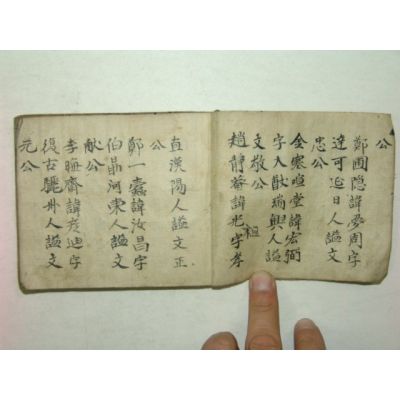 公
鄭圃隐諱夢周字
達可迎日人謚文
忠公
金寒暄堂諱宏弼
字大猷瑞興人謚
文敬公
趙靜菴諱光祖字孝
直漢陽人謚文正
公
鄭一蠹諱汝昌字
伯勗河東人謚文
献公
李晦齋諱彦迪字
復古驪州人謚文
元公